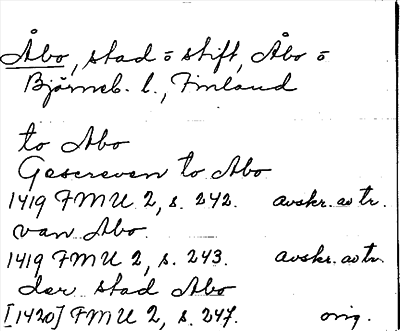 Åbo, stad o stift, Åbo o
Björneb. l., Finland
to Abo
Gescreven to Abo
1419 FMU 2, s. 242. avskr. av tr.
van Abo.
1419 FMU 2, s. 243. avskr. av tr.
der stad Abo
[1420] FMU 2, s. 247. orig.